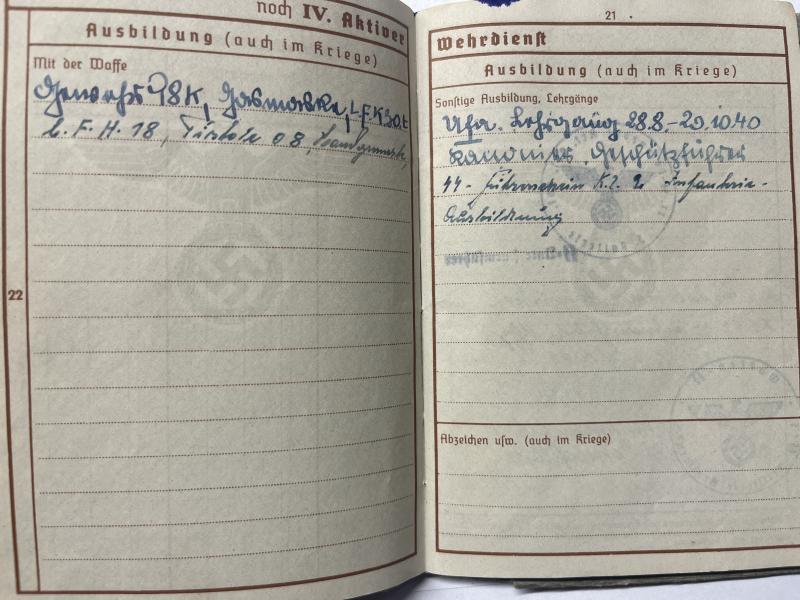 noch IV. Aktiver
Ausbildung (auch im Kriege)
Mit der Waffe
Gewehr 98K, Gasmaske,
l. F. H. 18, Pistole 08,
22
21
Wehrdienst
Ausbildung (auch im Kriege)
Sonstige Ausbildung, Lehrgänge
Ufa. Lehrgang 28.8.-20.10.40
Kanonier, Geschützführer
Führerschein Kl. 2 Infanterie-
Ausbildung
Abzeichen usw. (auch im Kriege)